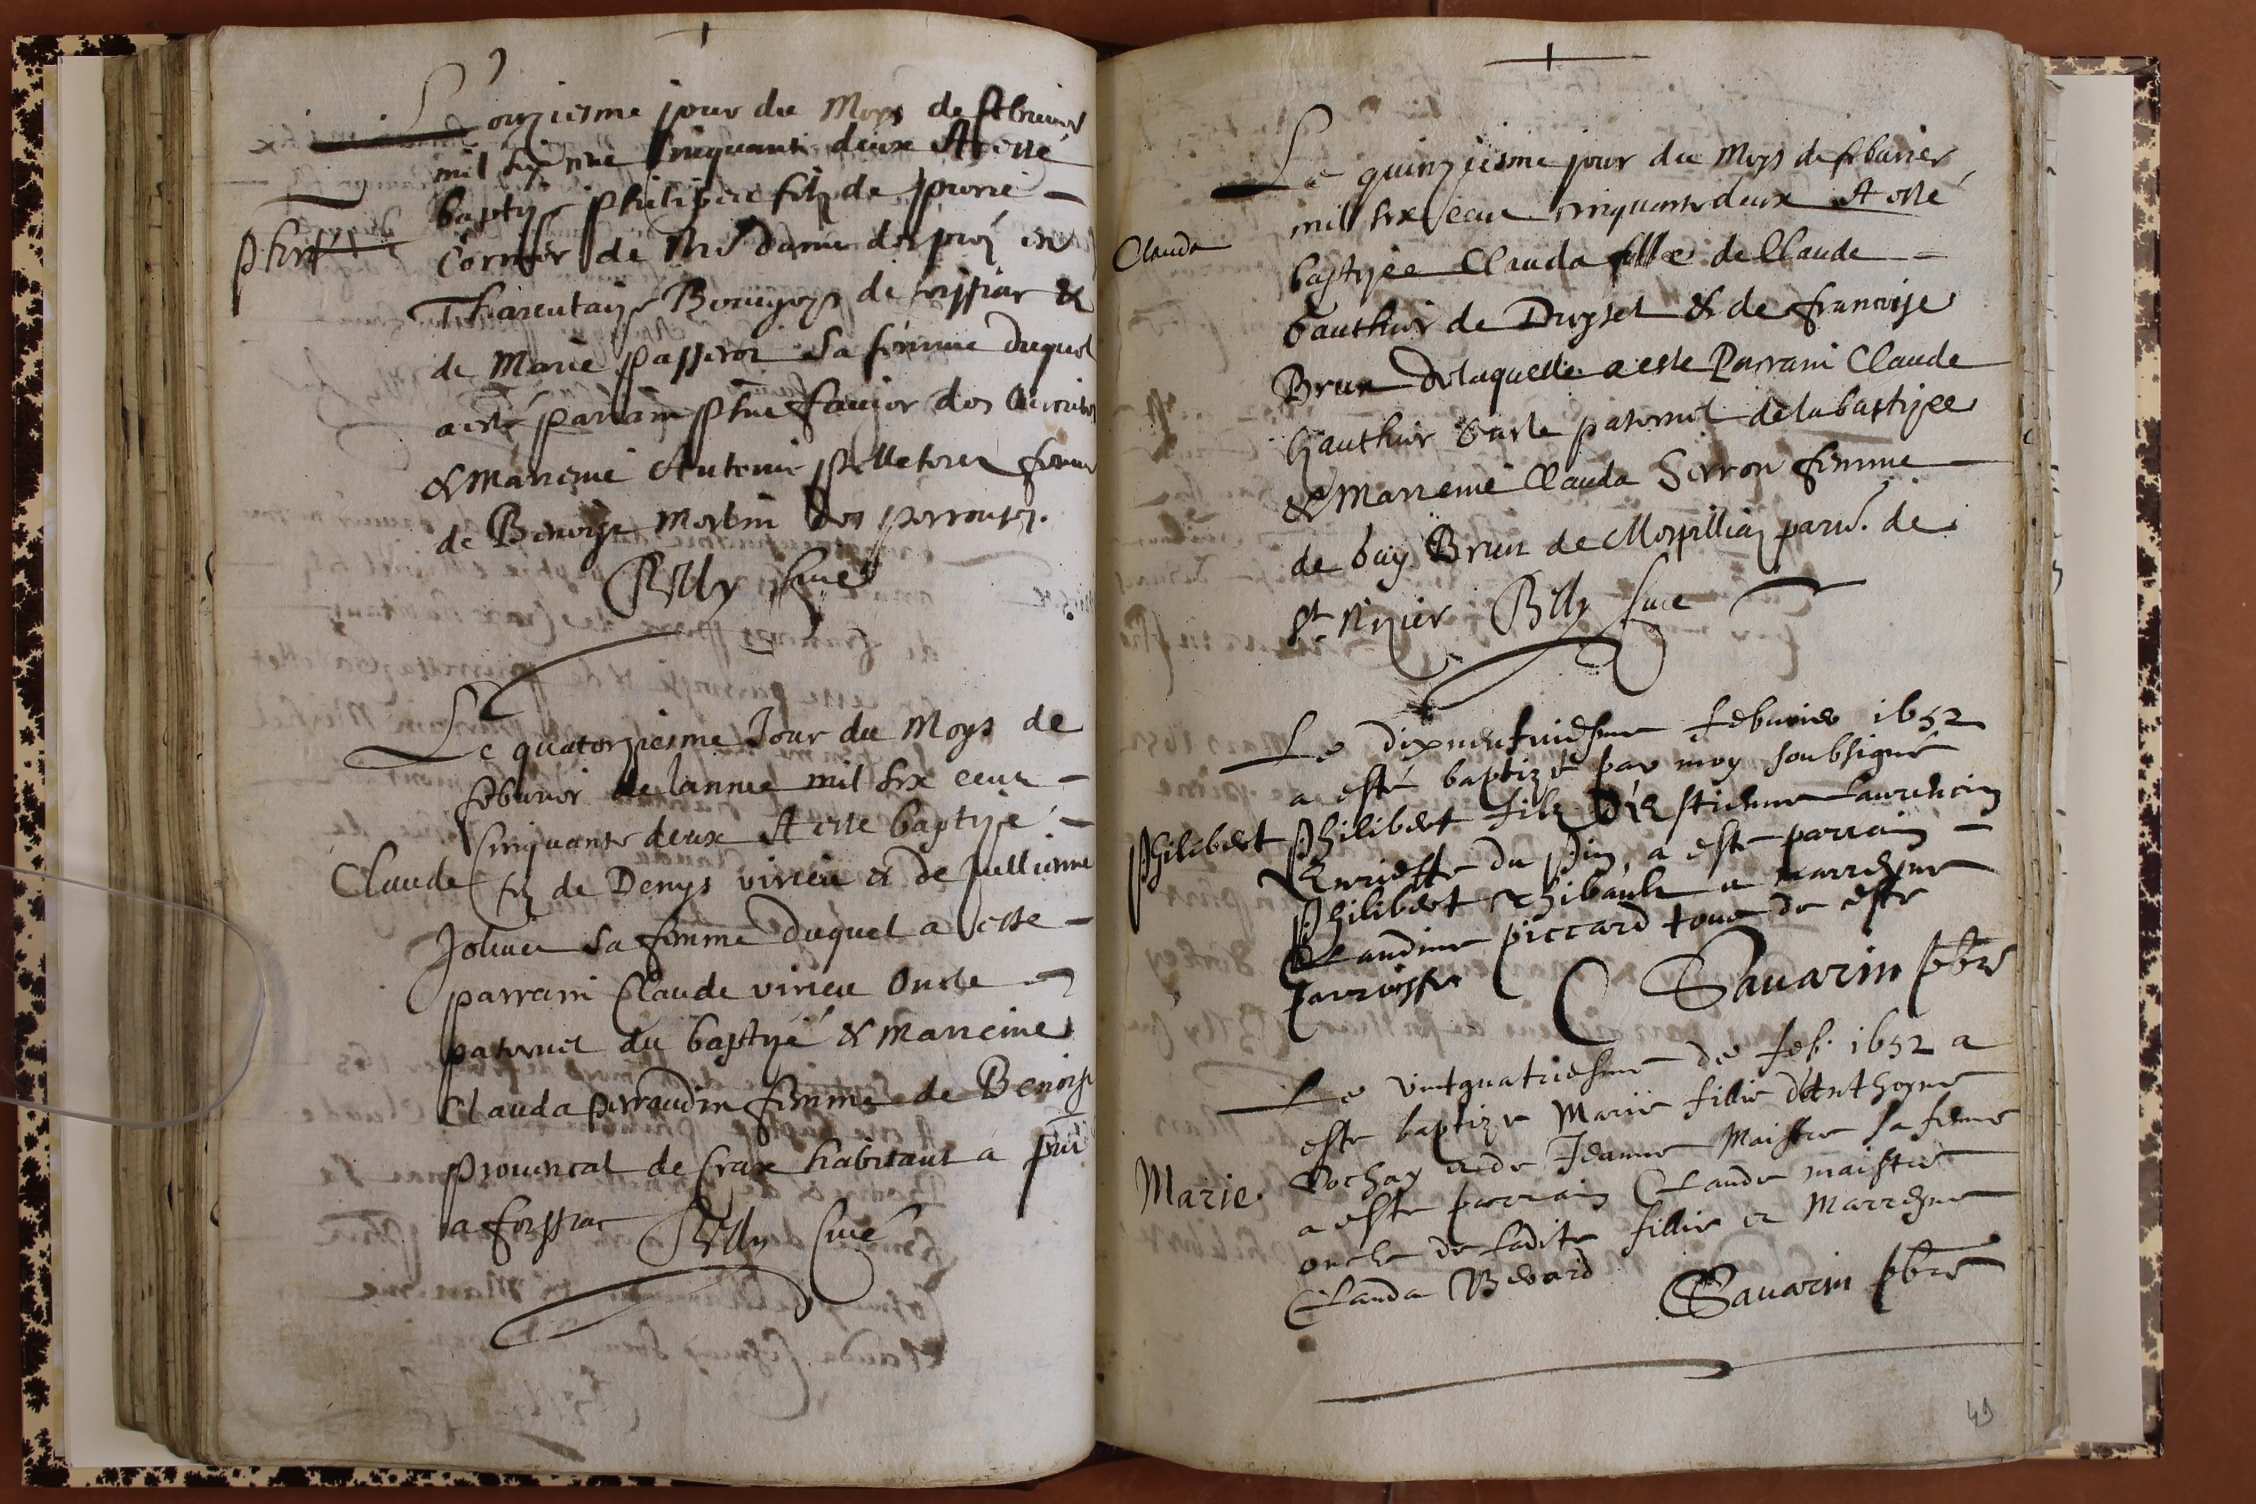 L'onziesme jour du Moys de febvrier
mil six cens cinquante deux A esté
baptyse philibert filz de pierre
phirt
Cornier de Nre dame des prez en
Tharentayse Bourgoys de foissiac &
de Marie passerot Sa femme duquel
a esté parrain phe faujor des
& Marreine Antenie pelletour femme
de Benoist Morbin des perrouses.
Billy Curé
Le quatorziesme Jour du Moys de
febvrier de lannee mil six cens
Cinquante deux A esté baptysé
Claude
filz de Denys virieu & de Jullienne
sa femme duquel a este
parrain Claude virieu Oncle
paternel du baptysé & marreine
Clauda perraudin femme de Benoist
Provencal de Craz habitant a
a foissiac Billy Curé
Le quinziesme jour du Moys de febvrier
mil six cens cinquante deux A esté
Clauda
baptysee Clauda fille de Claude
Gauthier de Druyset & de francoise
Brun de laquelle a este Parrain Claude
Gauthier Oncle paternel de la baptysee
& Marreine Clauda Serron femme
de Guy Brun de Mospillian parr. de
St. nizier Billy Curé
Le dixneufviesme febvrier 1652
a esté baptizé par moy soubsigné
Philibert
Philibert filz D'Estienne Laurencin
Enrieste du pin, a este parrain
Philibert Thibault & marreyne
Claudine piccard tous de ceste
parroisse Savarin pbre
Le vintquatriesme de feb. 1652 a
este baptize Marie fillie d'Anthoyne
Marie.
Rochay & de Jeanne Maistre sa feme
a este parrain Claude maistre
oncle de ladite fillie et Marreyne
Clauda Bevard Savarin pbre
49